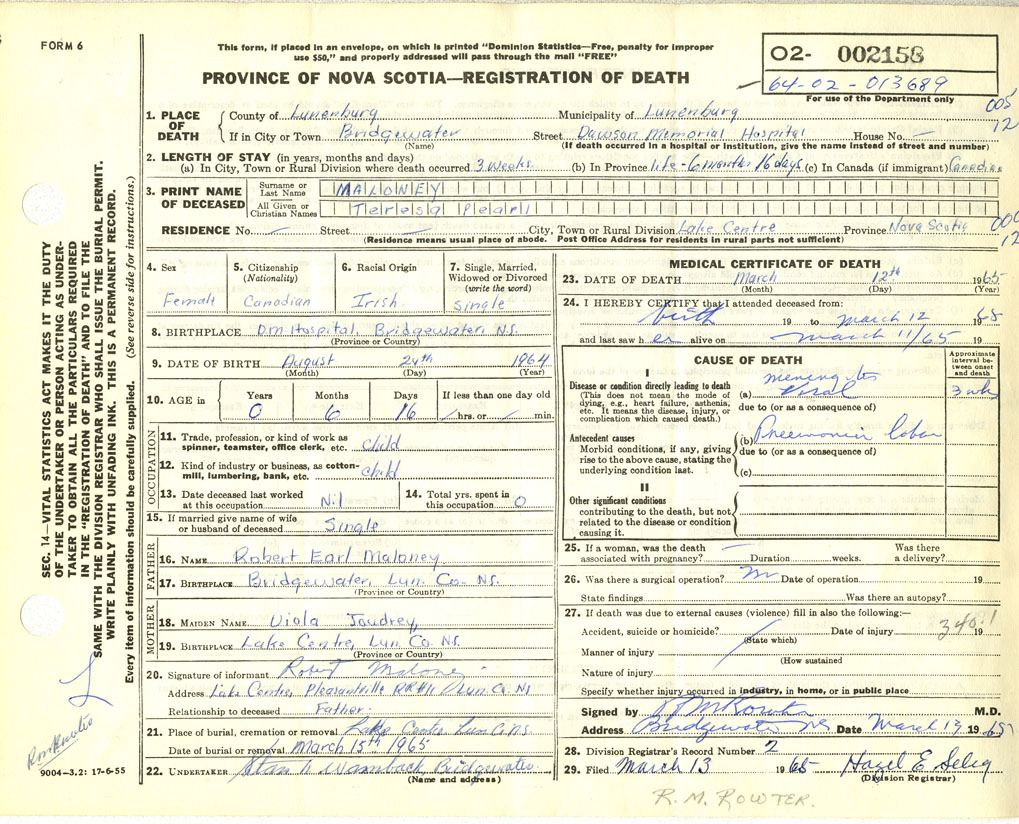 FORM 6
This form, if placed in an envelope, on which is printed "Dominion Statistics—Free, penalty for improper
use $50," and properly addressed will pass through the mail "FREE"
PROVINCE OF NOVA SCOTIA—REGISTRATION OF DEATH
02- 002158
64-02-013689
For use of the Department only
005
12
1. PLACE OF DEATH
County of Lunenburg Municipality of Lunenburg
If in City or Town Bridgewater Street Dawson Memorial Hospital House No. —
(Name) (If death occurred in a hospital or institution, give the name instead of street and number)
2. LENGTH OF STAY (in years, months and days)
(a) In City, Town or Rural Division where death occurred 3 weeks (b) In Province life - 6 months 16 days (c) In Canada (if immigrant) Canadian
3. PRINT NAME OF DECEASED
Surname or Last Name MALONEY
All Given or Christian Names Teresa Pearl
RESIDENCE No. — Street — City, Town or Rural Division Lake Centre Province Nova Scotia
(Residence means usual place of abode. Post Office Address for residents in rural parts not sufficient)
12
4. Sex Female
5. Citizenship (Nationality) Canadian
6. Racial Origin Irish
7. Single, Married, Widowed or Divorced (write the word) Single
8. BIRTHPLACE D.M Hospital, Bridgewater, N.S.
(Province or Country)
9. DATE OF BIRTH August 24th 1964
(Month) (Day) (Year)
10. AGE in Years 0 Months 6 Days 16 If less than one day old hrs. or min.
OCCUPATION
11. Trade, profession, or kind of work as spinner, teamster, office clerk, etc. Child
12. Kind of industry or business, as cotton-mill, lumbering, bank, etc. Child
13. Date deceased last worked at this occupation Nil
14. Total yrs. spent in this occupation 0
15. If married give name of wife or husband of deceased Single
FATHER
16. NAME Robert Earl Maloney
17. BIRTHPLACE Bridgewater, Lun. Co. N.S.
(Province or Country)
MOTHER
18. MAIDEN NAME Viola Joudrey
19. BIRTHPLACE Lake Centre, Lun Co. N.S.
(Province or Country)
20. Signature of informant Robert Malone
Address Lake Centre, Pleasantville RR#1 Lun. Co. NS
Relationship to deceased Father
21. Place of burial, cremation or removal Lake Centre Lun Co. N.S.
Date of burial or removal March 15th 1965
22. UNDERTAKER Wamback, Bridgewater
(Name and address)
MEDICAL CERTIFICATE OF DEATH
23. DATE OF DEATH March 12th 1965
(Month) (Day) (Year)
24. I HEREBY CERTIFY that I attended deceased from:
birth 19 to March 12 1965
and last saw h er alive on March 11/65 19
CAUSE OF DEATH
Approximate interval between onset and death
I
Disease or condition directly leading to death
(This does not mean the mode of dying, e.g., heart failure, asthenia, etc. It means the disease, injury, or complication which caused death.)
(a) meningitis 3 wk
due to (or as a consequence of)
Antecedent causes
Morbid conditions, if any, giving rise to the above cause, stating the underlying condition last.
(b) Pneumonia lobar
due to (or as a consequence of)
(c)
II
Other significant conditions
contributing to the death, but not related to the disease or condition causing it.
25. If a woman, was the death associated with pregnancy? — Duration weeks. Was there a delivery?
26. Was there a surgical operation? Date of operation 19
State findings Was there an autopsy?
27. If death was due to external causes (violence) fill in also the following:—
340.1
Accident, suicide or homicide? Date of injury 19
(State which)
Manner of injury
(How sustained
Nature of injury
Specify whether injury occurred in industry, in home, or in public place
Signed by M.D.
Address Bridgewater N.S. Date March 13 1965
28. Division Registrar's Record Number 7
29. Filed March 13 1965 Hazel E Selig
(Division Registrar)
R. M. ROWTER.
SEC. 14—VITAL STATISTICS ACT MAKES IT THE DUTY
OF THE UNDERTAKER OR PERSON ACTING AS UNDER-
TAKER TO OBTAIN ALL THE PARTICULARS REQUIRED
IN THE "REGISTRATION OF DEATH" AND TO FILE THE
SAME WITH THE DIVISION REGISTRAR WHO SHALL ISSUE THE BURIAL PERMIT.
WRITE PLAINLY WITH UNFADING INK. THIS IS A PERMANENT RECORD.
Every item of information should be carefully supplied. (See reverse side for instructions.)
9004—3.2: 17-6-55